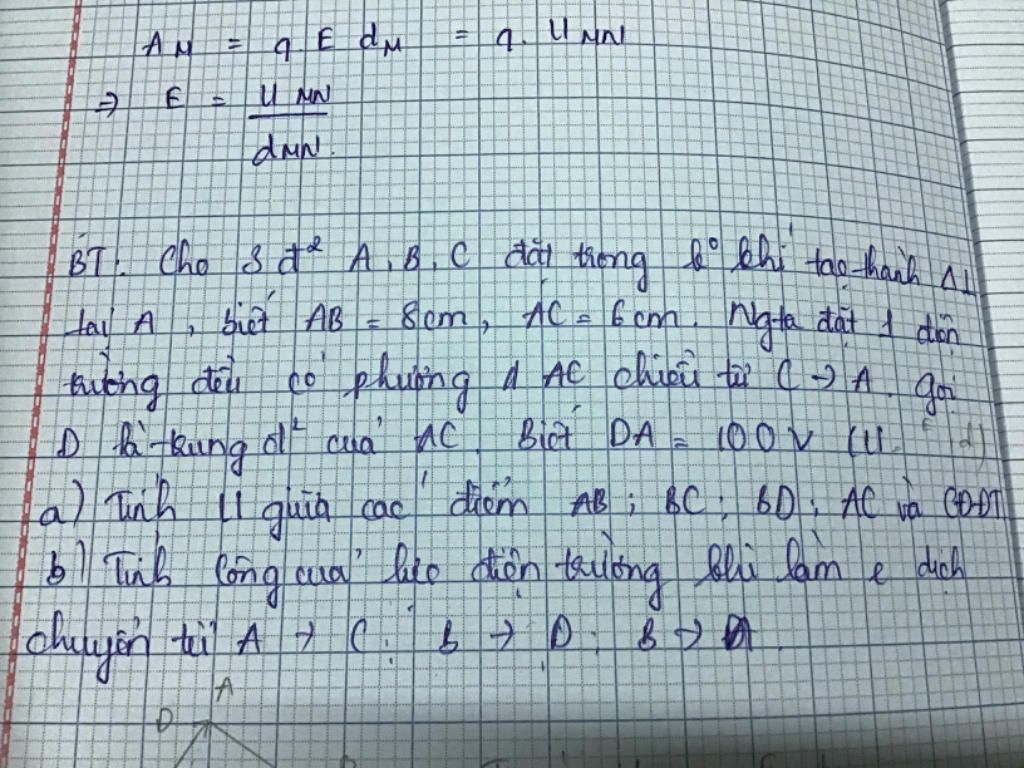 A M = q E d M = q. U MN
⇒ E = U MN
d MN.
BT: Cho 3 đ² A, B, C đặt trong k° khí tạo thành Δ⊥
tại A, biết AB = 8cm, AC = 6cm. Ng ta đặt 1 điện
trường đều có phương // AC chiều từ C → A. Gọi
D là trung đ² của AC. Biết DA = 100V (U
a) Tính U giữa các điểm AB; BC; BD; AC và CĐĐT
b) Tính công của lực điện trường khi làm e dịch
chuyển từ A → C; B → D; B →
A
D